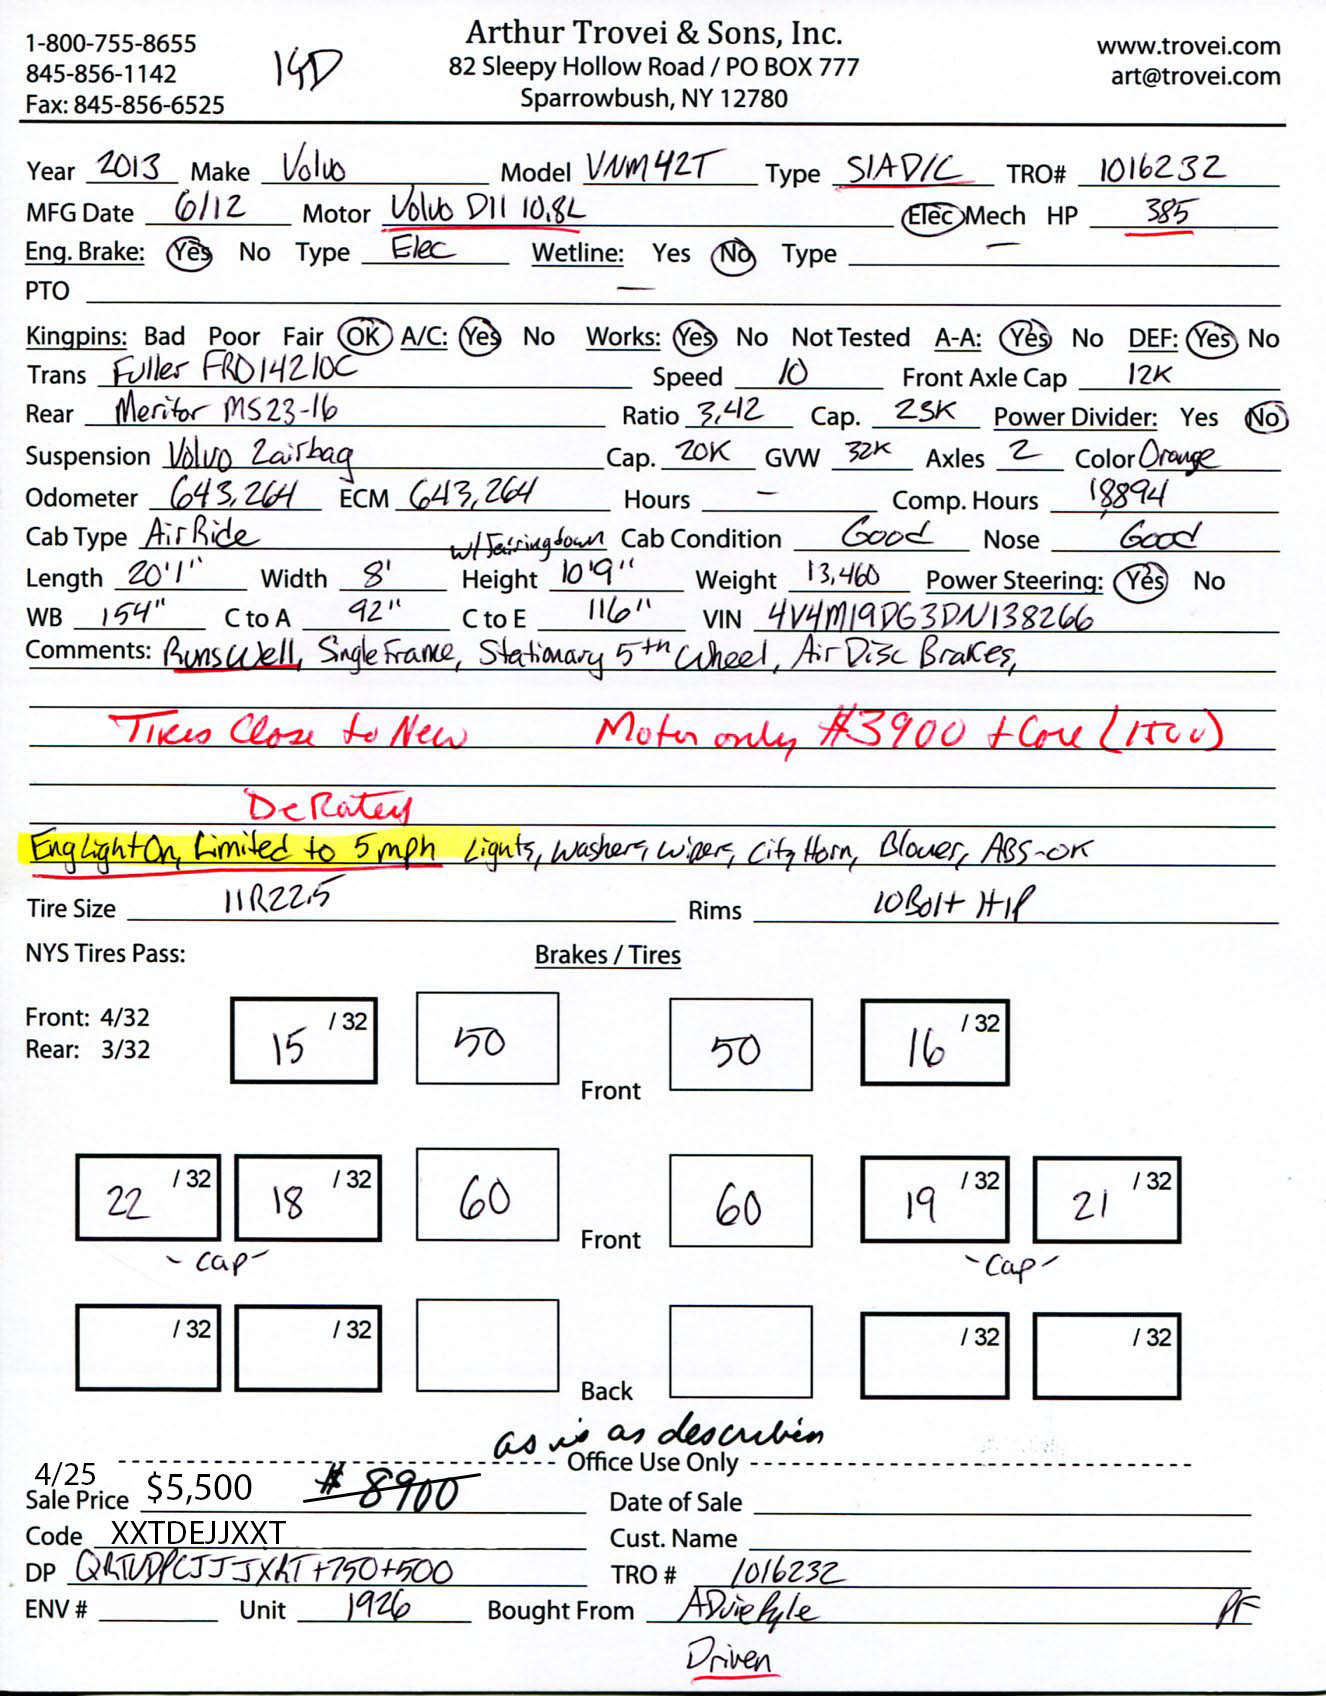 Arthur Trovei & Sons, Inc.
1-800-755-8655 www.trovei.com
845-856-1142 82 Sleepy Hollow Road / PO BOX 777 art@trovei.com
Fax: 845-856-6525 Sparrowbush, NY 12780
Year 2013 Make Volvo Model VNM42T Type S/A D/C TRO# 1016232
MFG Date 6/12 Motor Volvo D11 10.8L Elec Mech HP 385
Eng. Brake: Yes No Type Elec Wetline: Yes No Type —
PTO —
Kingpins: Bad Poor Fair OK A/C: Yes No Works: Yes No Not Tested A-A: Yes No DEF: Yes No
Trans Fuller FRO14210C Speed 10 Front Axle Cap 12K
Rear Meritor MS23-16 Ratio 3.42 Cap. 23K Power Divider: Yes No
Suspension Volvo 2airbag Cap. 20K GVW 32K Axles 2 Color Orange
Odometer 643,264 ECM 643,264 Hours — Comp. Hours 18894
Cab Type Air Ride w/ Fairing down Cab Condition Good Nose Good
Length 20'1" Width 8' Height 10'9" Weight 13,460 Power Steering: Yes No
WB 154" C to A 92" C to E 116" VIN 4V4M19DG3DN138266
Comments: Runs Well, Single Frame, Stationary 5th Wheel, Air Disc Brakes,
Tires Close to New Motor only $3900 + Core (1500)
DeRated
Eng Light On, Limited to 5 mph Lights, washers, wipers, City Horn, Blower, ABS-OK
Tire Size 11R22.5 Rims 10 Bolt H/P
NYS Tires Pass: Brakes / Tires
Front: 4/32 15 /32 50 50 16 /32
Rear: 3/32
Front
22 /32 18 /32 60 60 19 /32 21 /32
Front
- cap - - cap -
/32 /32 /32 /32
Back
as is as describin
Office Use Only
4/25
Sale Price $5,500 $8900 Date of Sale
Code XXTDEJJXXT Cust. Name
DP +750+500 TRO # 1016232
ENV # Unit 1926 Bought From PF
Driven